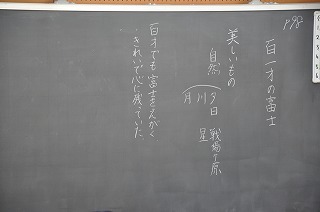 P98
百一才の富士
美しいもの
自然
夕日 戦場ヶ原
川 星
月
百才でも富士をえがく
・きれいで心に残っていた